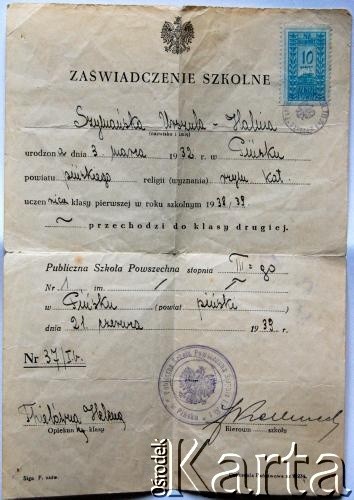 10
ZAŚWIADCZENIE SZKOLNE
Szymańska Urszula - Halina
(nazwisko i imię)
urodzona dn. 3. marca 1932 r. w Pińsku
powiatu pińskiego religii (wyznania) rzym. kat.
uczennica klasy pierwszej w roku szkolnym 1938/39.
~ przechodzi do klasy drugiej.
Publiczna Szkoła Powszechna stopnia III=go
Nr 1 im.
w Pińsku (powiat piński)
dnia 21 czerwca 1939 r.
Nr 37/Ib.
Helena
Opiekun klasy
Kierown. szkoły
ośrodek
Karta